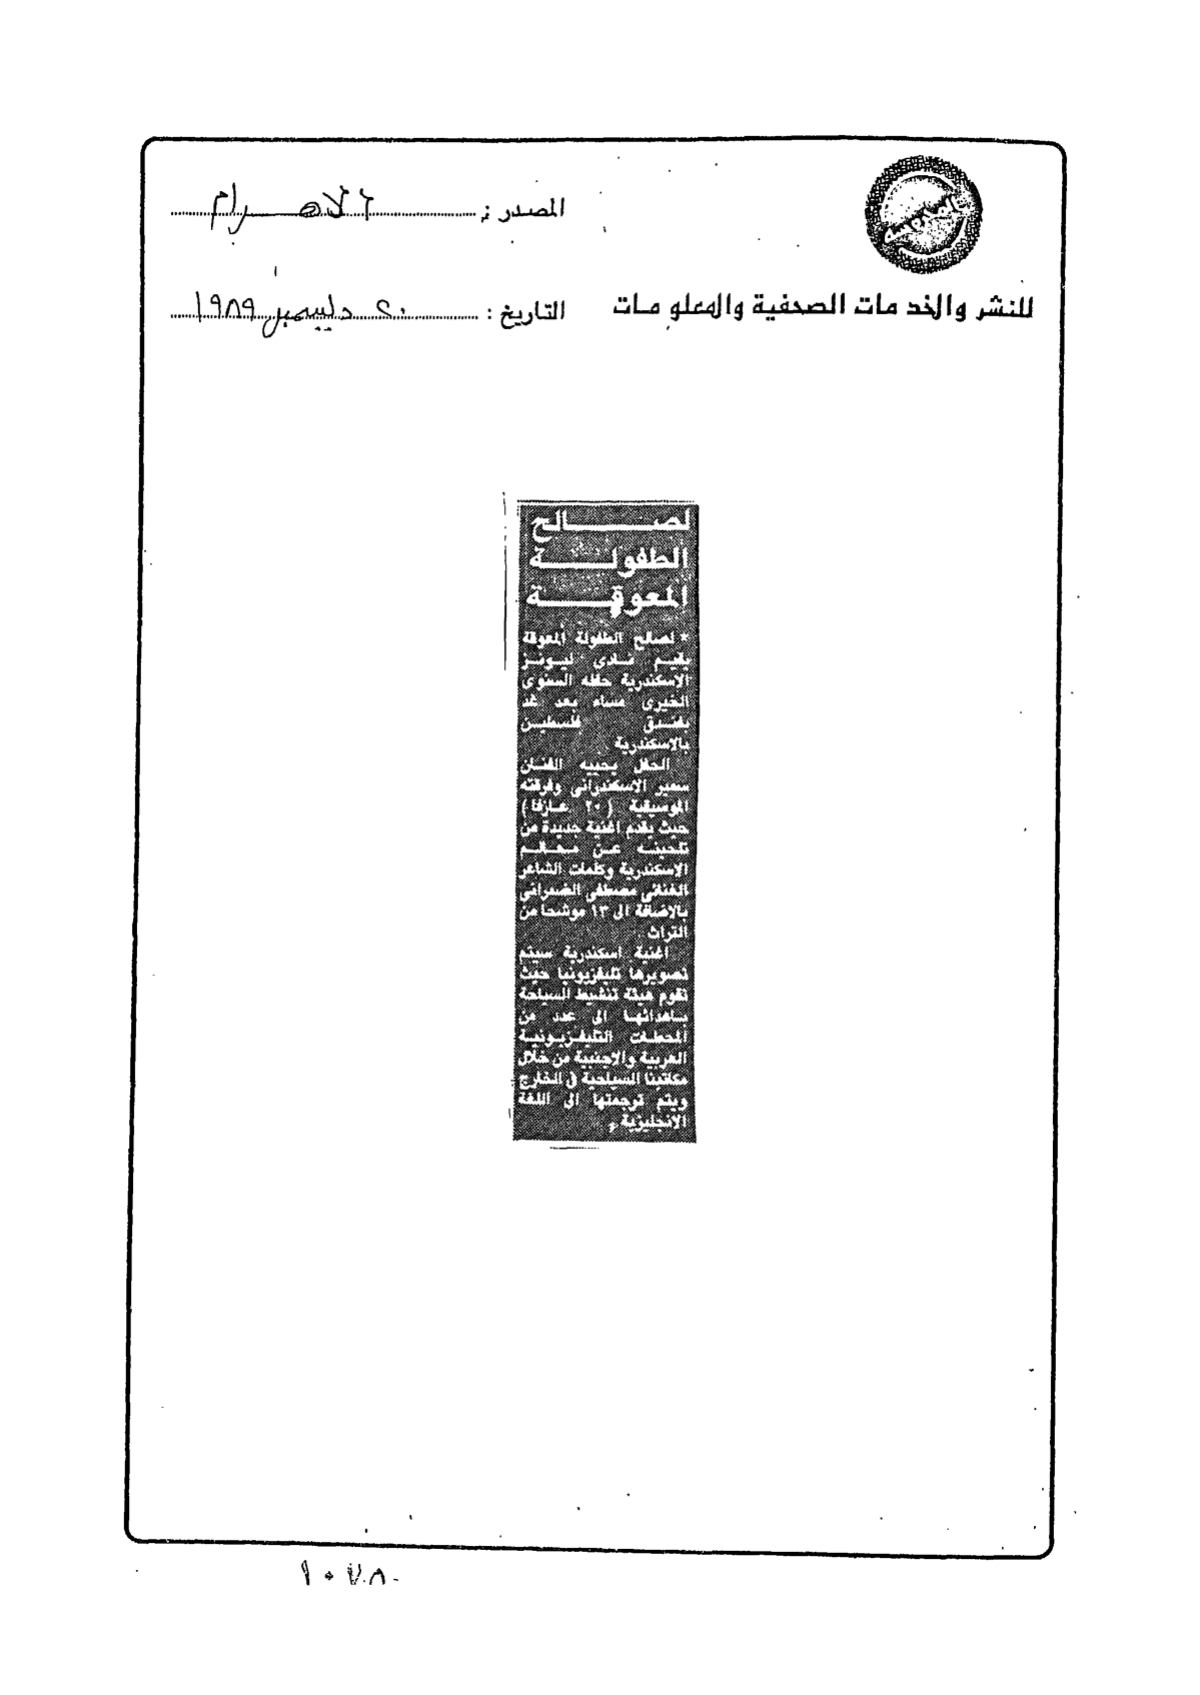 المصدر : الأهرام
للنشر والخدمات الصحفية والمعلومات
التاريخ : ٢٠ ديسمبر ١٩٨٩
لصالح
الطفولة
المعوقة
* لصالح الطفولة المعوقة
يقيم نادى ليونز
الاسكندرية حفله السنوى
الخيرى مساء بعد غد
بفندق فلسطين
بالاسكندرية
الحفل يحييه الفنان
سمير الاسكندرانى وفرقته
الموسيقية ( ٢٠ عازفا )
حيث يقدم اغنية جديدة من
تلحينه عن معالم
الاسكندرية وكلمات الشاعر
الغنائى مصطفى الضمرانى
بالاضافة الى ١٣ موشحا من
التراث .
اغنية اسكندرية سيتم
تصويرها تليفزيونيا حيث
تقوم هيئة تنشيط السياحة
باهدائها الى عدد من
المحطات التليفزيونية
العربية والاجنبية من خلال
مكاتبنا السياحية فى الخارج
ويتم ترجمتها الى اللغة
الانجليزية .